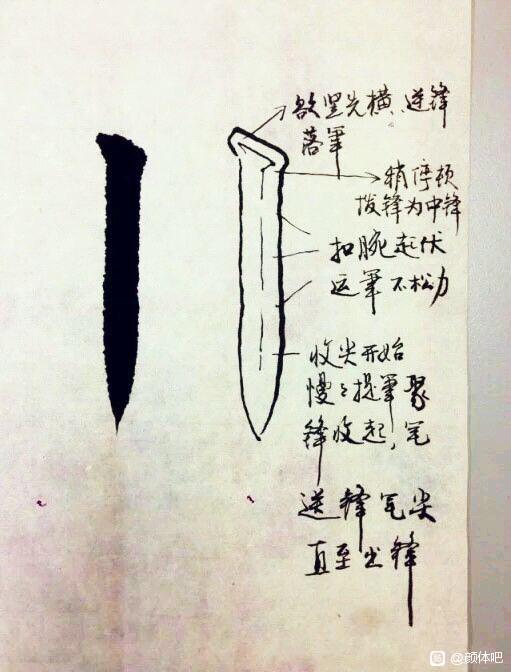 欲竖先横、逆锋
落笔
稍停顿
拨锋为中锋
扣腕起伏
运笔不松力
收尖开始
慢慢提笔聚
锋收起,笔
送锋笔尖
直至出锋
@颜体吧